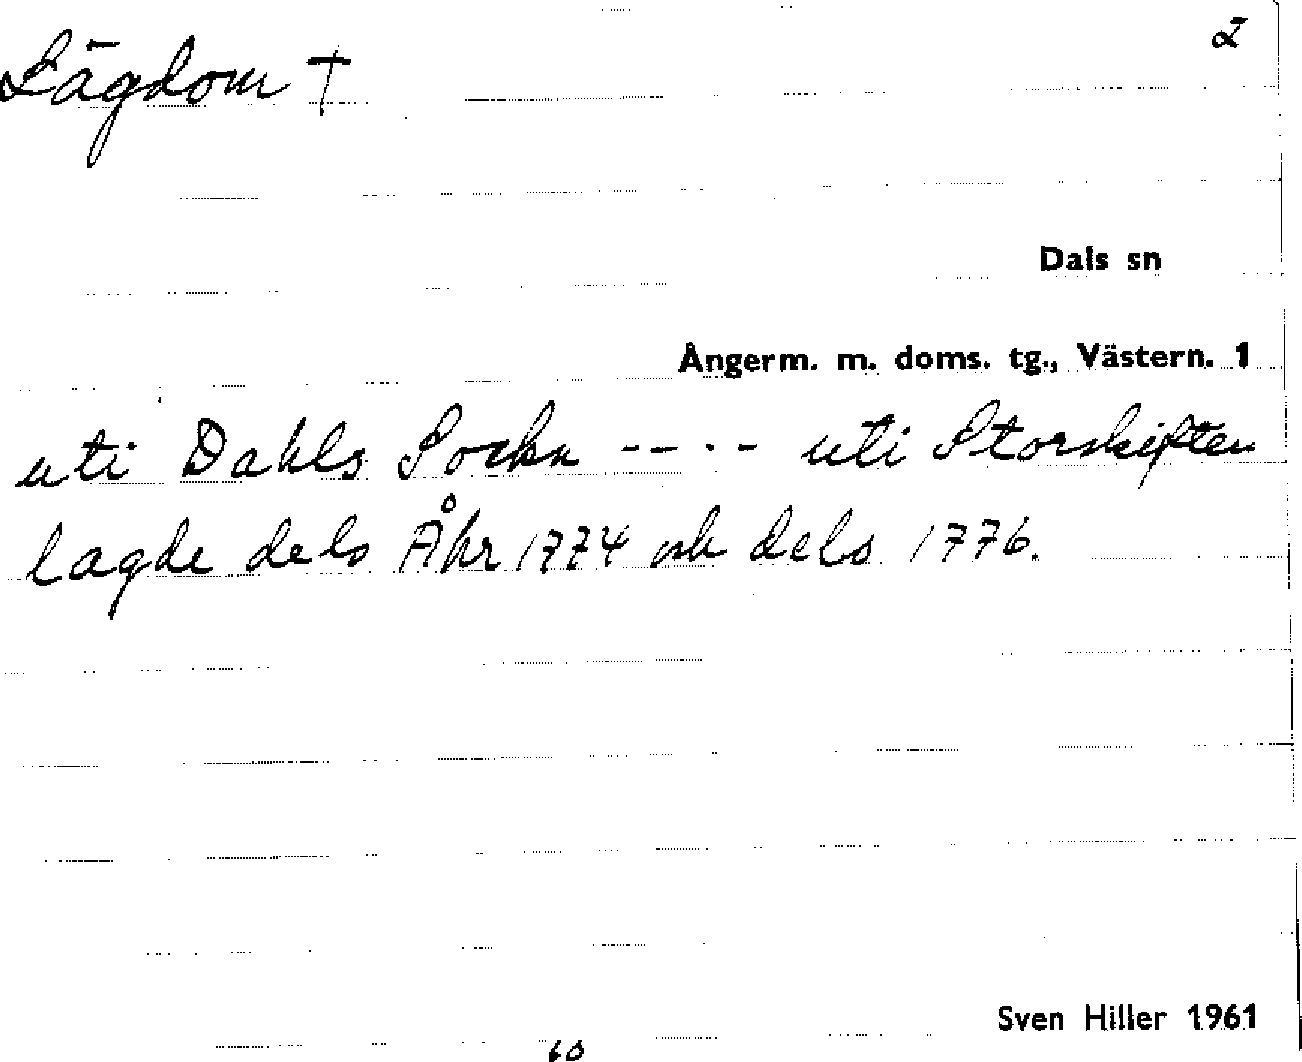 Lägdom †
2
Dals sn
Ångerm. m. doms. tg., Västern. 1
uti Dahls Sockn --.- uti Storskiften
lagde dels Åhr 1774 och dels 1776.
Sven Hiller 1961
60